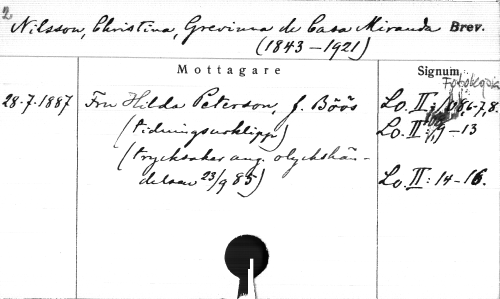 2
Nilsson, Christina, Grevinna de Casa Miranda Brev.
(1843–1921)
Mottagare Signum
Fotokopia
28.7.1887 Fru Hilda Peterson, f. Böös Lo. II: 6-7, 8.
(tidningsurklipp) Lo. II: 9-13
(trycksaker ang. olyckshän-
delsen 23/9 85) Lo. II: 14-16.